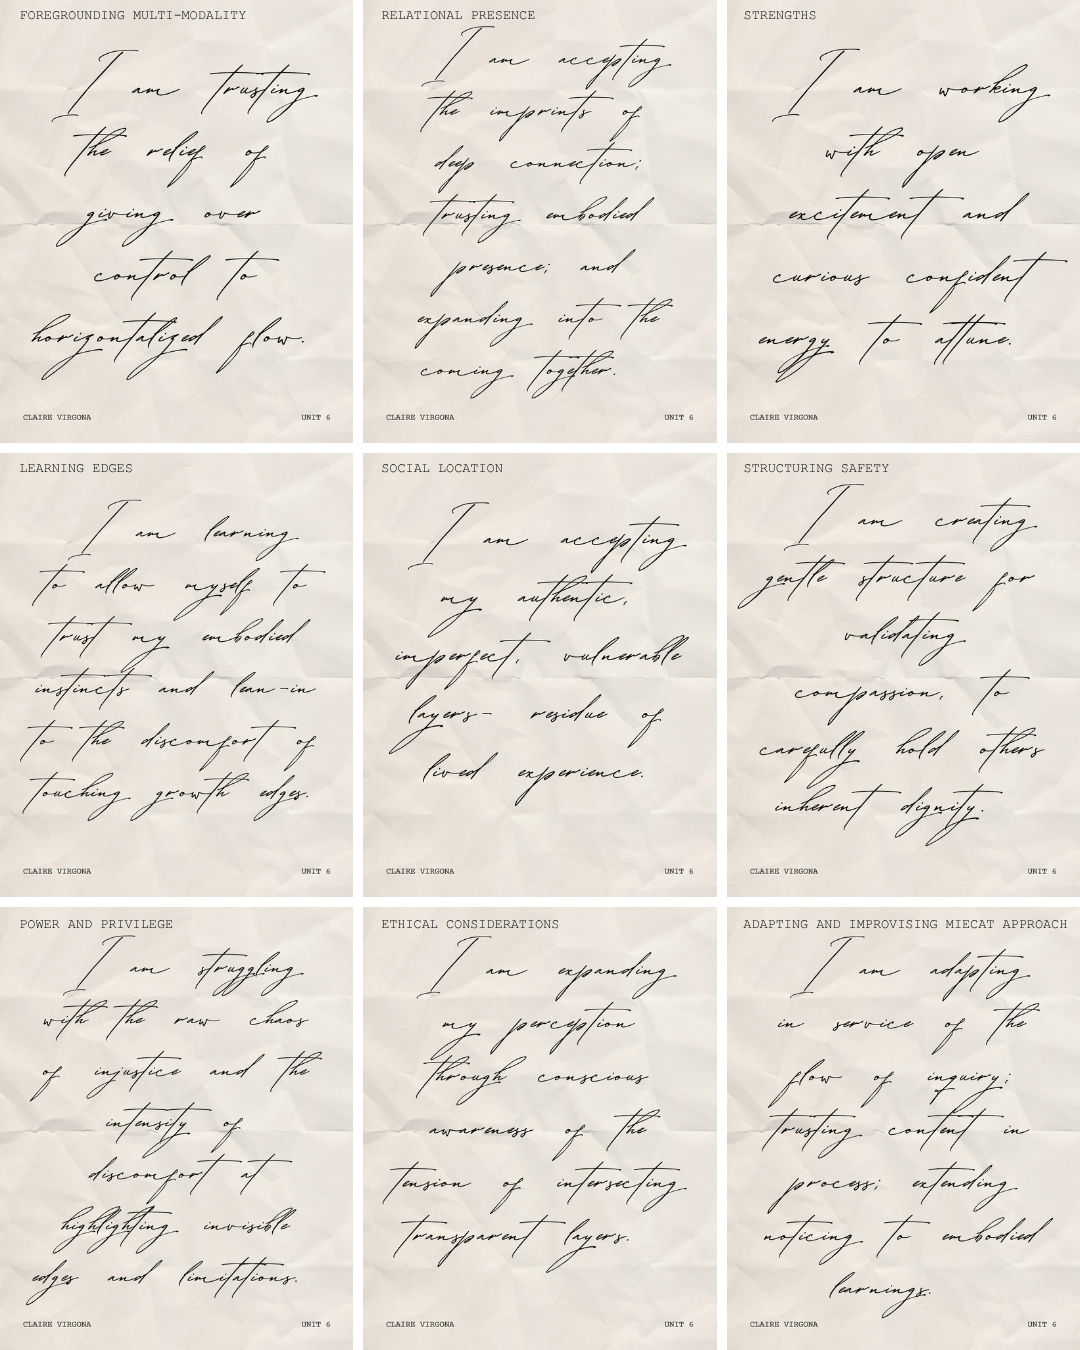 FOREGROUNDING MULTI-MODALITY
I am trusting
the relief of
giving over
control to
horizontalized flow.
CLAIRE VIRGONA
UNIT 6
RELATIONAL PRESENCE
I am accepting
the imprints of
deep connection;
trusting embodied
presence; and
expanding into the
coming together.
CLAIRE VIRGONA
UNIT 6
STRENGTHS
I am working
with open
excitement and
curious confident
energy to attune.
CLAIRE VIRGONA
UNIT 6
LEARNING EDGES
I am learning
to allow myself to
trust my embodied
instincts and lean-in
to the discomfort of
touching growth edges.
CLAIRE VIRGONA
UNIT 6
SOCIAL LOCATION
I am accepting
my authentic,
imperfect, vulnerable
layers- residue of
lived experience.
CLAIRE VIRGONA
UNIT 6
STRUCTURING SAFETY
I am creating
gentle structure for
validating
compassion, to
carefully hold others
inherent dignity.
CLAIRE VIRGONA
UNIT 6
POWER AND PRIVILEGE
I am struggling
with the raw chaos
of injustice and the
intensity of
discomfort at
highlighting invisible
edges and limitations.
CLAIRE VIRGONA
UNIT 6
ETHICAL CONSIDERATIONS
I am expanding
my perception
through conscious
awareness of the
tension of intersecting
transparent layers.
CLAIRE VIRGONA
UNIT 6
ADAPTING AND IMPROVISING MIECAT APPROACH
I am adapting
in service of the
flow of inquiry;
trusting content in
process; extending
noticing to embodied
learnings.
CLAIRE VIRGONA
UNIT 6